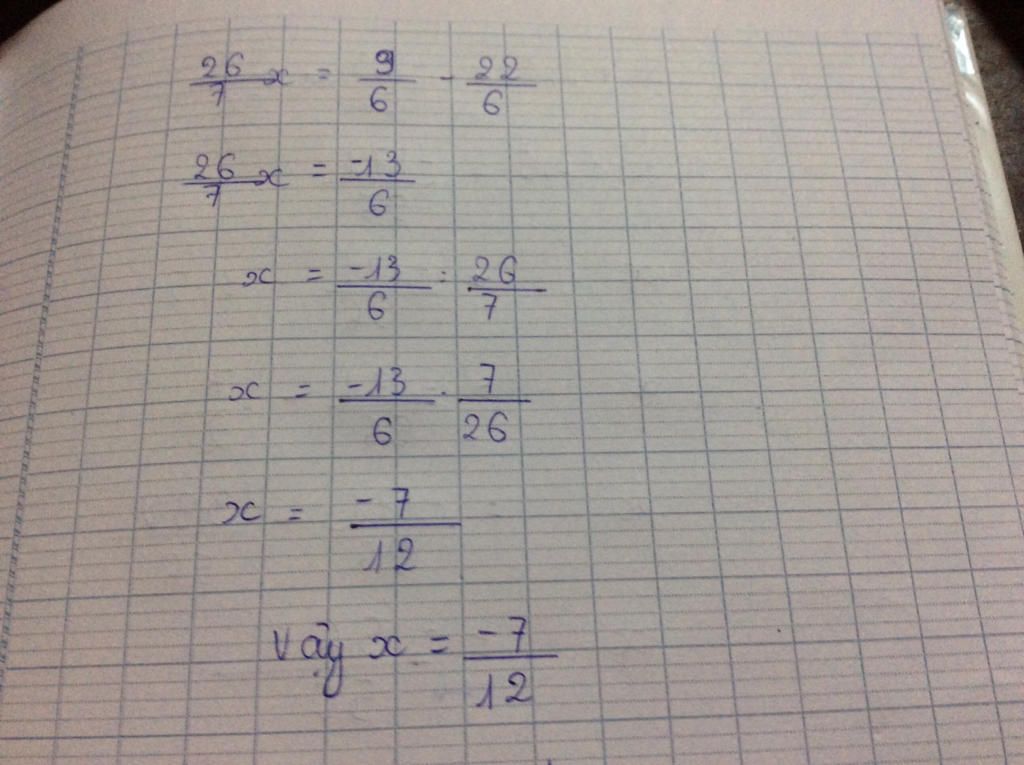 26/7 x = 9/6 - 22/6
26/7 x = -13/6
x = -13/6 : 26/7
x = -13/6 . 7/26
x = -7/12
Vậy x = -7/12